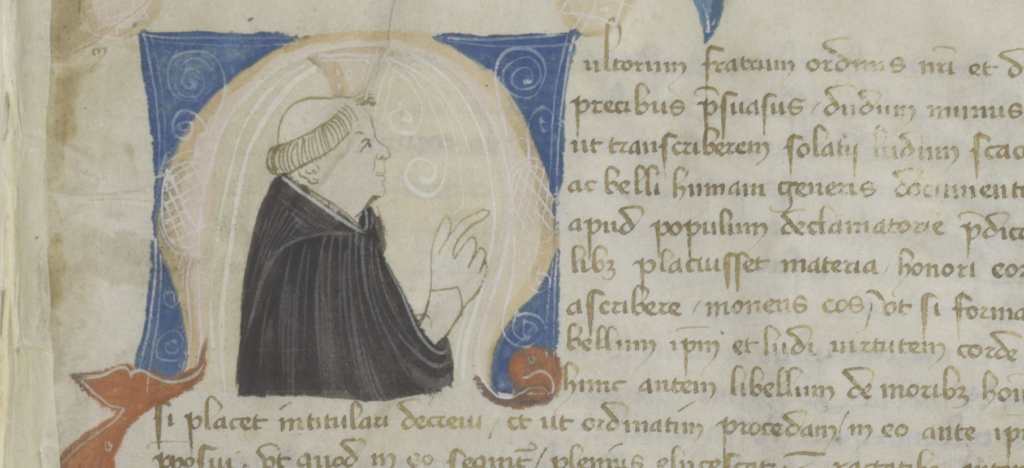 Multorum fratrum ordinis nri et d
precibus p̄suasus dudum minus
ut transcriberem solatij ludum scac
ac belli humani generis documentu
apud populum declamatorie p̄dic
libꝫ placuisset materia honori eor
ascribere monens eos ut si forma
bellum ip̄m et ludi virtutem corde
hunc autem libellum de moribꝫ hom
si placet intitulari decreui et ut ordinatim procedam in eo ante ip
p̄posui ut quod in eo seqnit̄ plenius elucescat